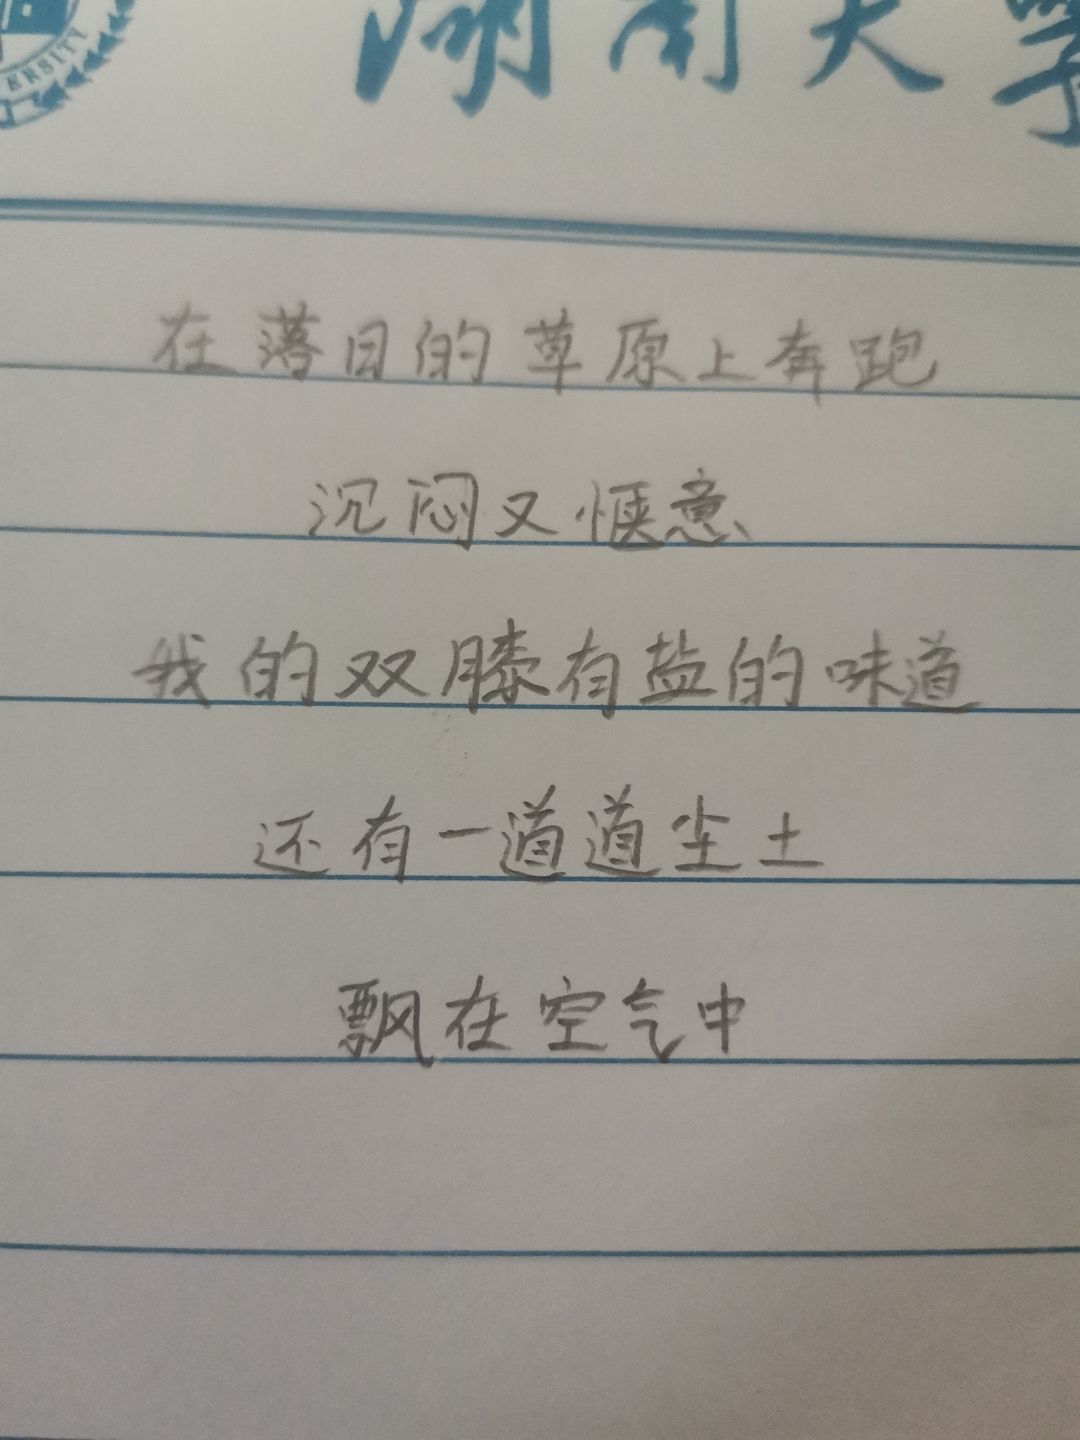 ERSITY
湖南大學
在落日的草原上奔跑
沉闷又惬意
我的双膝有盐的味道
还有一道道尘土
飘在空气中